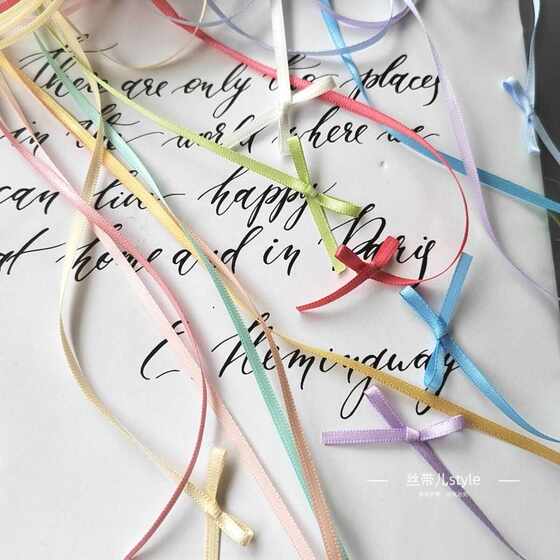 there are only two places
in the world where we
can live happy
at home and in Paris
E Hemingway
丝带儿style